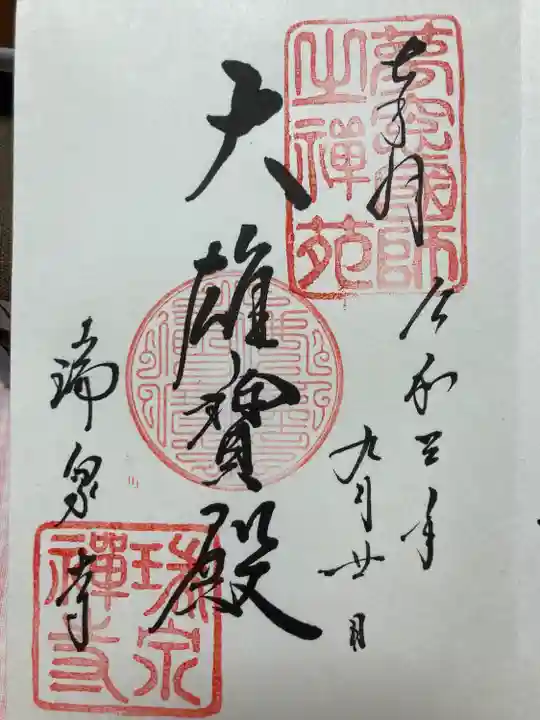 奉拝
令和三年
九月廿日
大雄寶殿
瑞泉寺
夢窓國師
之禪苑
瑞泉
禪寺